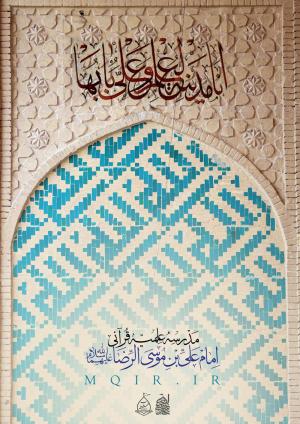 انا مدینة العلم و علی بابها
مدرسه علمیه قرآنی
امام علی بن موسی الرضا علیهماالسلام
MQIR.IR